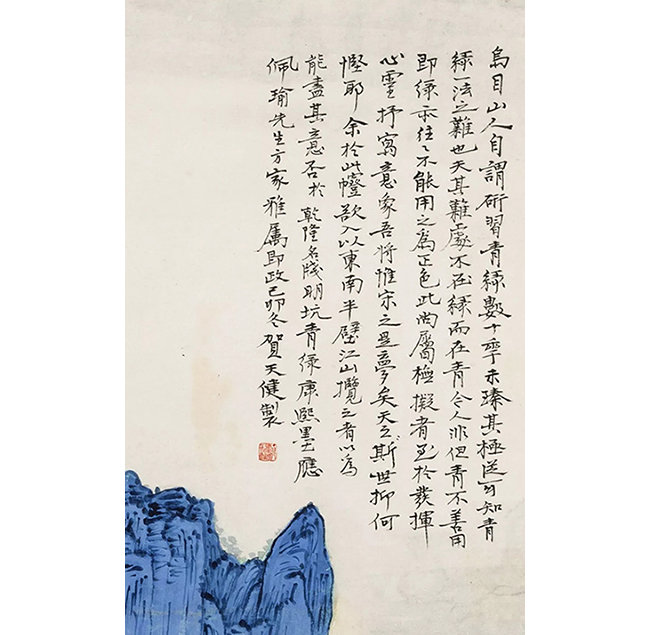 烏目山人自謂研習青綠數十年未臻其極迳可知青
綠一法之難也夫其難處不在綠而在青今人非但青不善用
即綠亦往往不能用之為正色此尚屬極擬者至於發揮
心靈抒寫意象吾將惟宋之是夢矣天之斯世抑何
慳耶余於此幀欲入以東南半壁江山攬之者以為
能盡其意否於乾隆名牋明坑青綠康熙墨應
佩瑜先生方家雅屬即政己卯冬賀天健製